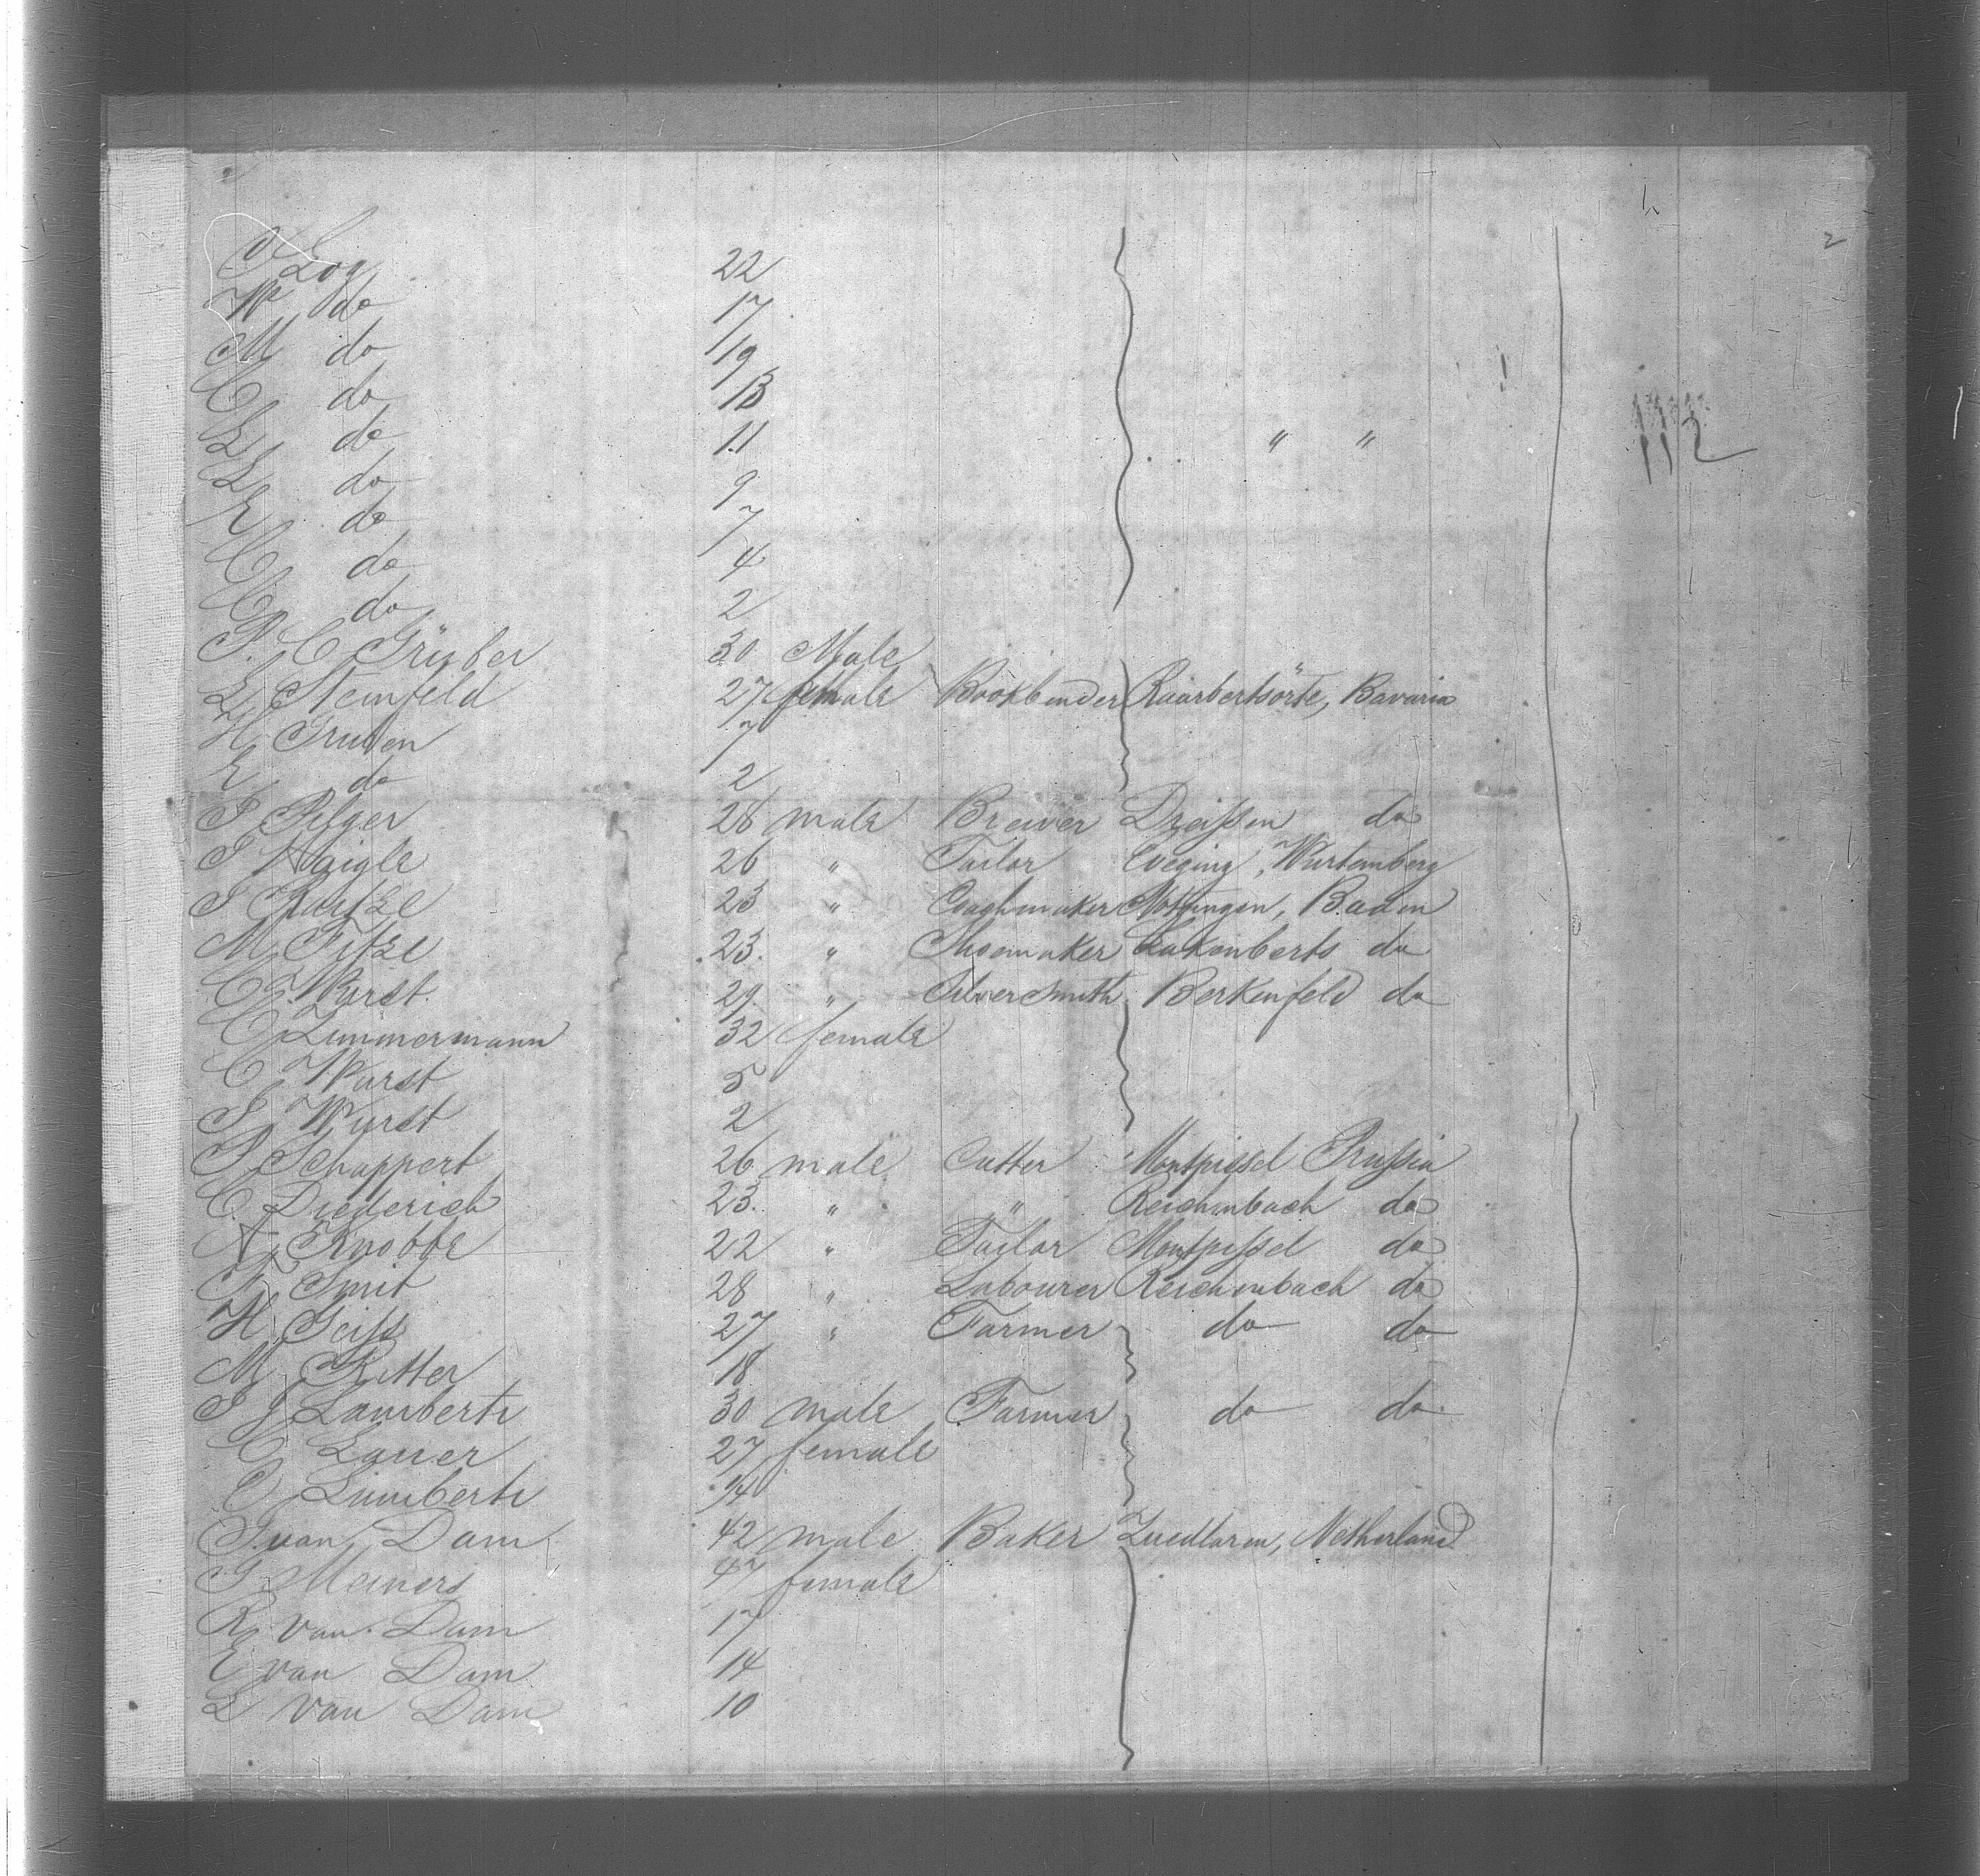 2
J Log 22
W do 17
M do 19
C do 13
L do 11 " " 112
L do 9
E do 7
C do 4
C do 2
P. C Grüber 30 Male
L Steinfeld 27 female Bookbinder Bavaria
H Gruben 7
E do 2
P Pilger 28 male Brewer Dreissen do
J Haigle 26 " Tailor Wurtemberg
J 23 " Coachmaker Nottingen, Baden
M Fitze 23. " Shoemaker do
C Wurst. 29. " Silversmith Berkenfeld do
C Zimmermann 32 female
C Wurst 5
J Wurst 2
P Schappert 26 male Cutter Prussia
C. Diederich 23. " " Reichenbach do
A Knobbe 22 " Tailor do
Smit 28 " Labourer Reichenbach do
H Geiss 27 " Farmer do do
M Ritter 18
J J Lamberti 30 male Farmer do do
C Lauer 27 female
C Lamberti
J. van Dam 42 male Baker Zuedlaren, Netherland
G Meiners 47 female
R van Dam 17
E van Dam 14
L van Dam 10